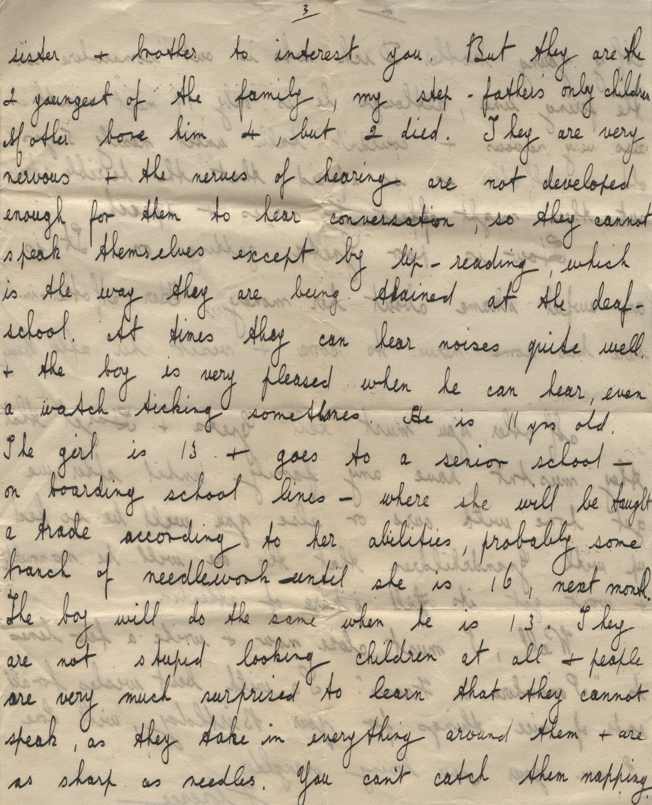 3
sister + brother to interest you. But they are the
2 youngest of the family, my step-father's only children
Mother bore him 4, but 2 died. They are very
nervous + the nerves of hearing are not developed
enough for them to hear conversation, so they cannot
speak themselves except by lip-reading, which
is the way they are being trained at the deaf-
school. At times they can hear noises quite well
+ the boy is very pleased when he can hear, even
a watch ticking sometimes. He is 11 yrs old.
The girl is 13 + goes to a senior school -
on boarding school lines - where she will be taught
a trade according to her abilities, probably some
branch of needlework until she is 16, next month.
The boy will do the same when he is 13. They
are not stupid looking children at all + people
are very much surprised to learn that they cannot
speak, as they take in everything around them + are
as sharp as needles. You can't catch them napping.